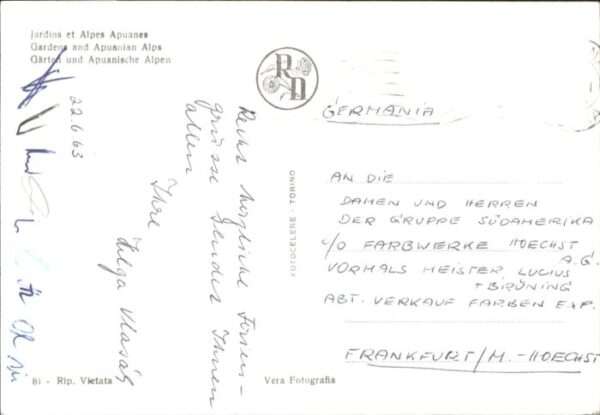 Jardins et Alpes Apuanes
Gardens and Apuanian Alps
Gärten und Apuanische Alpen
RD
22.6.63
Recht herzliche Ferien-
grüsse sendet Ihnen
allen
Ihre
Helga
FOTOCELERE - TORINO
GERMANIA
AN DIE
DAMEN UND HERREN
DER GRUPPE SÜDAMERIKA
c/o FARBWERKE HOECHST
A.G.
VORMALS MEISTER LUCIUS
+ BRÜNING
ABT. VERKAUF FARBEN EXP.
FRANKFURT/M.-HOECHST
81 - Rip. Vietata
Vera Fotografia